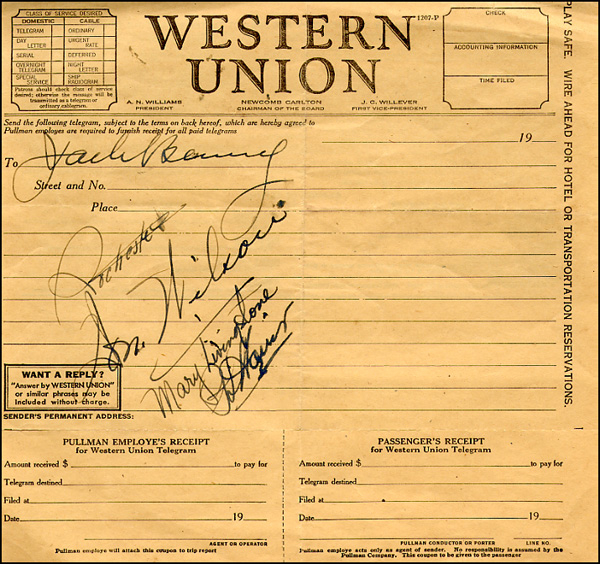 CLASS OF SERVICE DESIRED
DOMESTIC CABLE
TELEGRAM ORDINARY
DAY LETTER URGENT RATE
SERIAL DEFERRED
OVERNIGHT TELEGRAM NIGHT LETTER
SPECIAL SERVICE SHIP RADIOGRAM
Patrons should check class of service
desired; otherwise the message will be
transmitted as a telegram or
ordinary cablegram.
WESTERN
UNION
1207-P
CHECK
ACCOUNTING INFORMATION
TIME FILED
A. N. WILLIAMS
PRESIDENT
NEWCOMB CARLTON
CHAIRMAN OF THE BOARD
J. C. WILLEVER
FIRST VICE-PRESIDENT
Send the following telegram, subject to the terms on back hereof, which are hereby agreed to
Pullman employes are required to furnish receipt for all paid telegrams
19
To Jack Benny
Street and No.
Place
Rochester
Don Wilson
Mary Livingstone
PLAY SAFE. WIRE AHEAD FOR HOTEL OR TRANSPORTATION RESERVATIONS.
WANT A REPLY?
"Answer by WESTERN UNION"
or similar phrases may be
included without charge.
SENDER'S PERMANENT ADDRESS:
PULLMAN EMPLOYE'S RECEIPT
for Western Union Telegram
Amount received $ to pay for
Telegram destined
Filed at
Date 19
AGENT OR OPERATOR
Pullman employe will attach this coupon to trip report
PASSENGER'S RECEIPT
for Western Union Telegram
Amount received $ to pay for
Telegram destined
Filed at
Date 19
PULLMAN CONDUCTOR OR PORTER LINE NO.
Pullman employe acts only as agent of sender. No responsibility is assumed by the
Pullman Company. This coupon to be given to the passenger